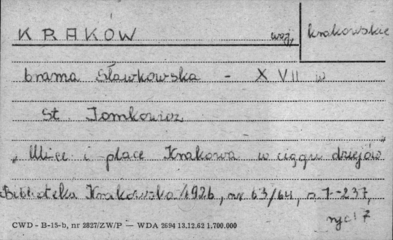 KRAKÓW woj. krakowskie
brama Sławkowska - XVII w
St Tomkowicz
„Ulice i place Krakowa w ciągu dziejów"
Biblioteka Krakowska 1926, nr 63/64, s. 7-237,
ryc 17
CWD - B-15-b, nr 2827/ZW/P — WDA 2694 13.12.62 1.700.000